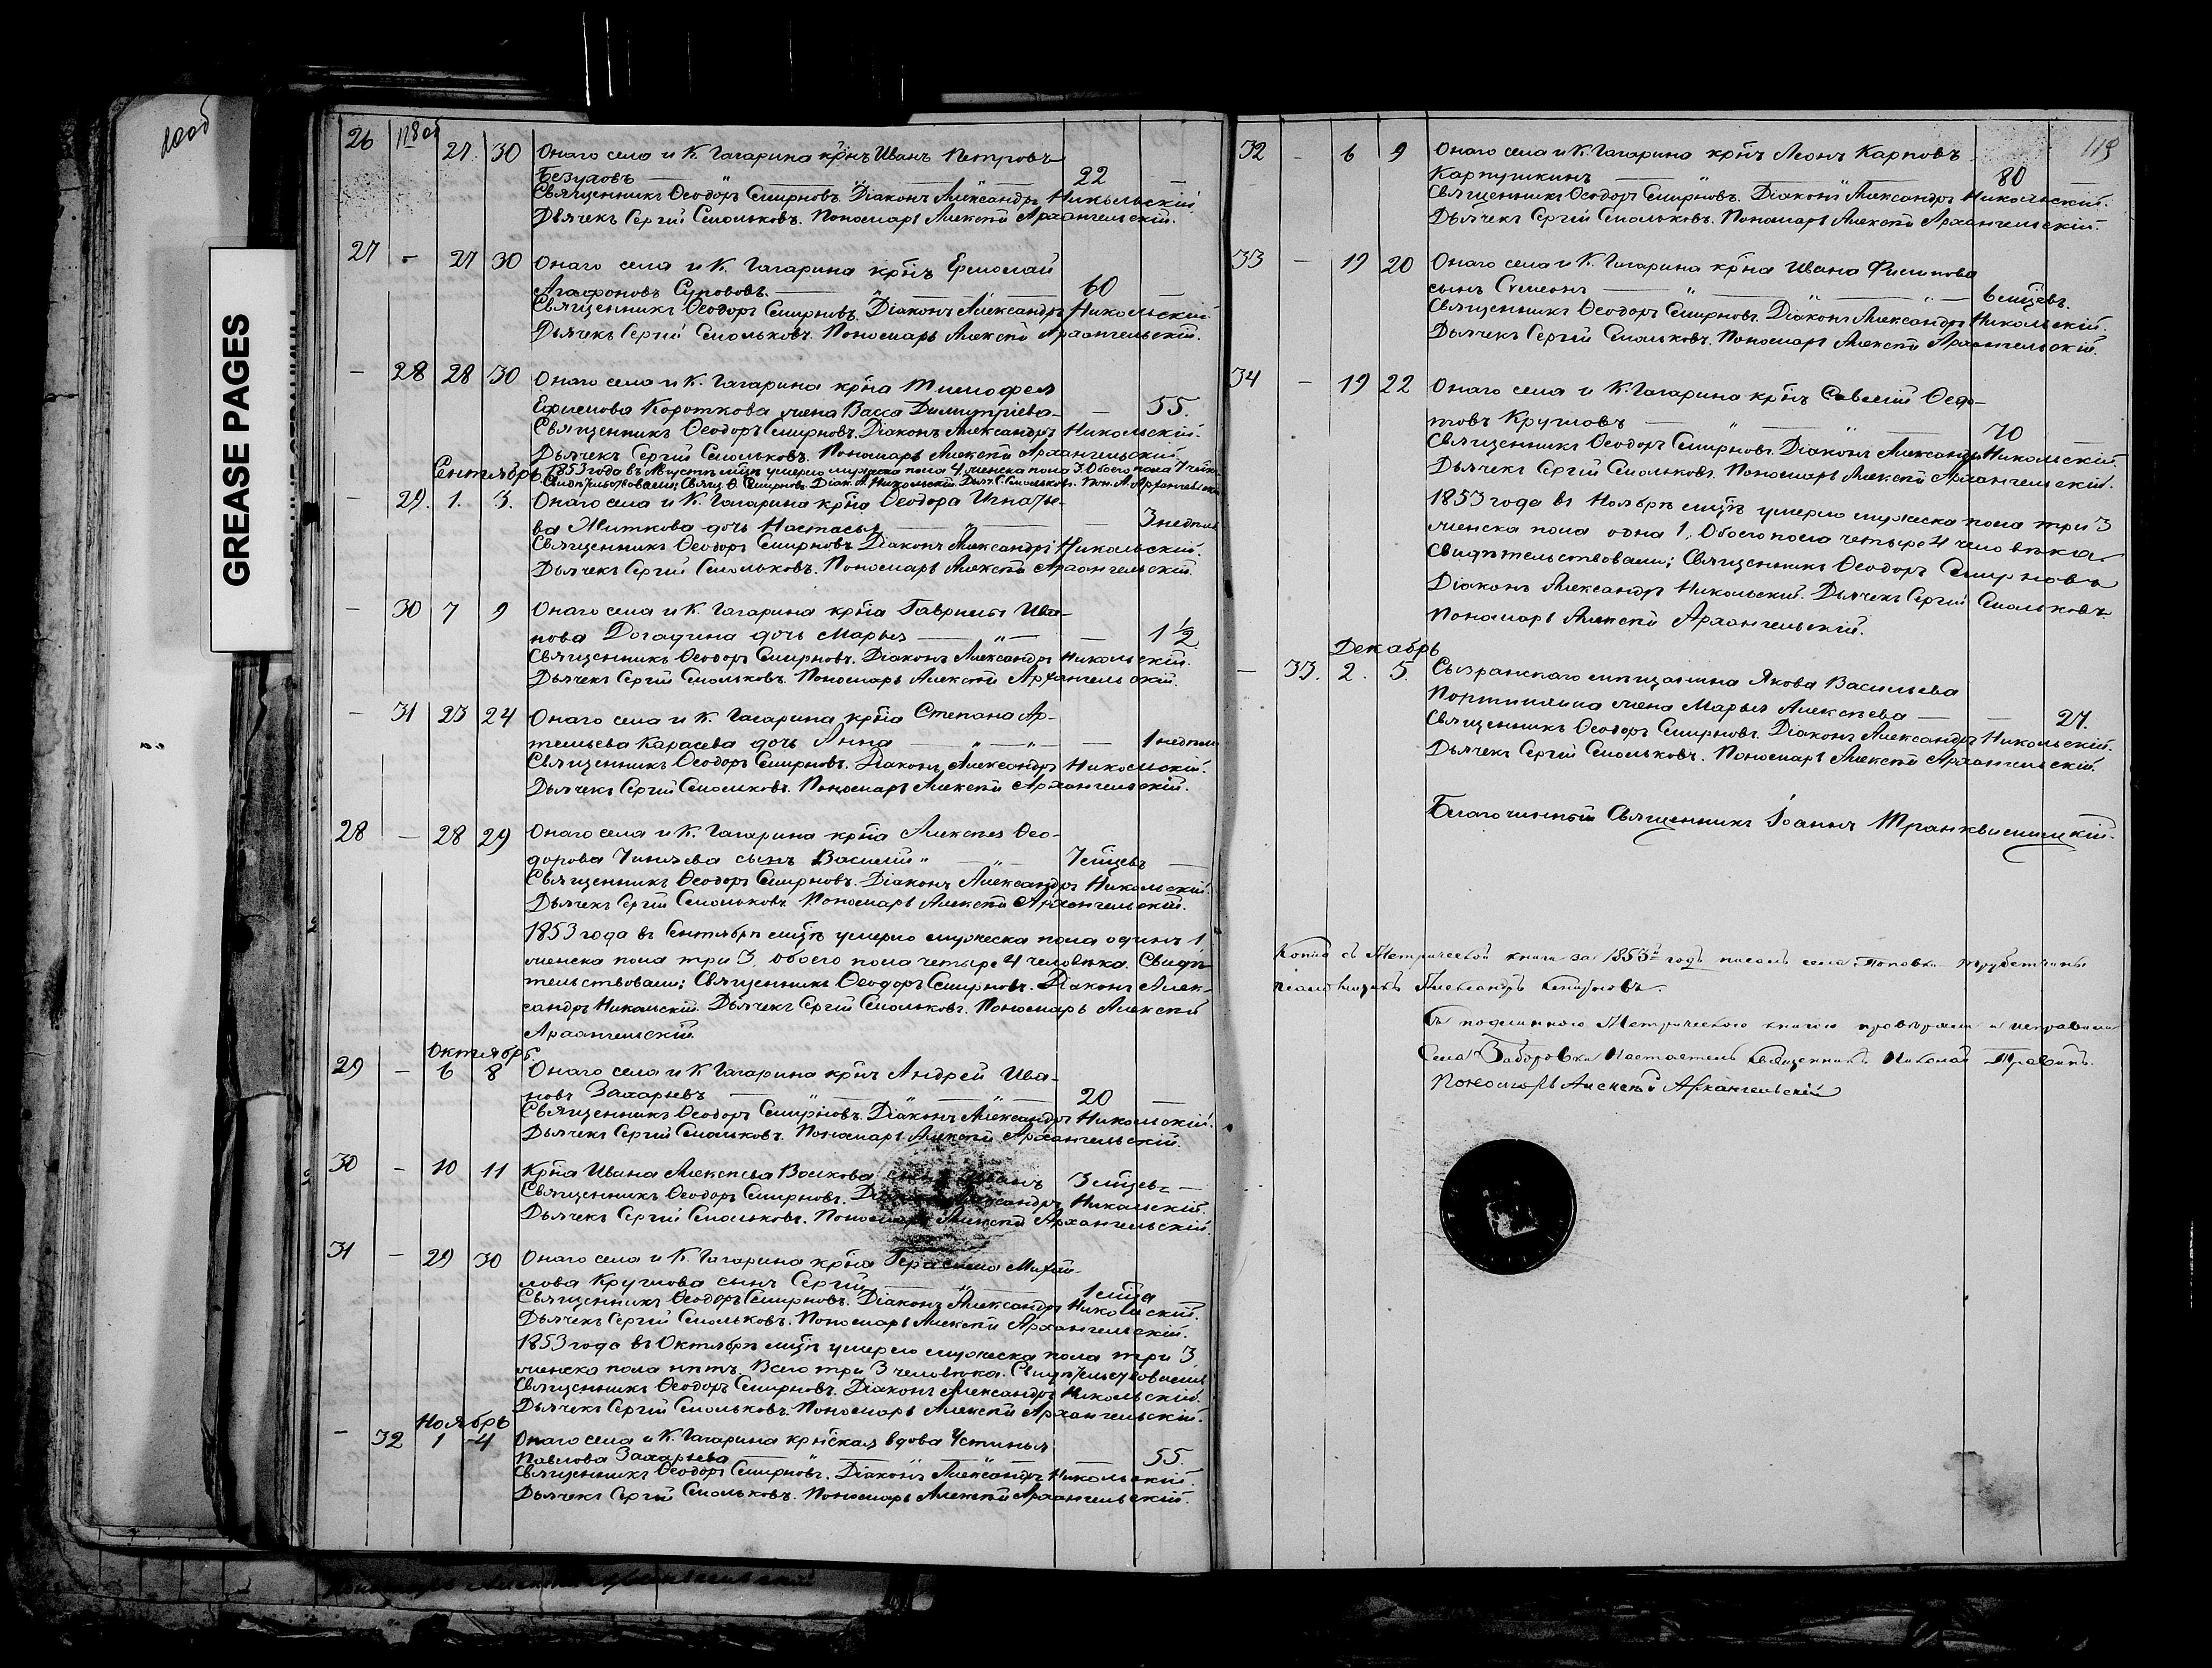 100об
GREASE PAGES
118 об
26 27. 30 Онаго села и К. Гагарина крнъ Иванъ Петровъ
Безуховъ — " — " — 22 —
Священникъ Ѳеодоръ Смирновъ. Діаконъ Александръ Никольскій.
Дьячекъ Сергій Смольковъ. Пономарь Алексѣй Архангельскій.
27 - 27 30 Онаго села и К. Гагарина крнъ Ермолай
Агафоновъ — " — 60 —
Священникъ Ѳеодоръ Смирновъ. Діаконъ Александръ Никольскій
Дьячекъ Сергій Смольковъ. Пономарь Алексѣй Архангельскій.
— 28 28 30 Онаго села и К. Гагарина крна Тимофея
Ефимова Короткова жена Васса Димитріева — — 55.
Священникъ Ѳеодоръ Смирновъ. Діаконъ Александръ Никольскій.
Дьячекъ Сергій Смольковъ. Пономарь Алексѣй Архангельскій
Сентябрь 1853 года въ Августѣ мцѣ умерло мужеска пола 4. женска пола 3. Обоего пола 7 челов.
Свидѣтельствовали; Свящ. Ѳ. Смирновъ. Діак. А. Никольскій. Дьяч. С. Смольковъ. Пон. А. Архангельскій
— 29. 1. 3. Онаго села и К. Гагарина крна Ѳеодора Игнатье-
ва Житкова дочь Настасья — " — — 3 недѣль
Священникъ Ѳеодоръ Смирновъ Діаконъ Александръ Никольскій.
Дьячекъ Сергій Смольковъ. Пономарь Алексѣй Архангельскій.
— 30 7 9 Онаго села и К. Гагарина крна Гаврилы Ива-
нова Догадина дочь Марья — " — — 1 1/2
Священникъ Ѳеодоръ Смирновъ. Діаконъ Александръ Никольскій.
Дьячекъ Сергій Смольковъ. Пономарь Алексѣй Архангельскій.
— 31 23 24 Онаго села и К. Гагарина крна Степана Ар-
темьева Карасева дочь Анна — " — " — — 1 недѣли
Священникъ Ѳеодоръ Смирновъ. Діаконъ Александръ Никольскій.
Дьячекъ Сергій Смольковъ. Пономарь Алексѣй Архангельскій.
28 — 28 29 Онаго села и К. Гагарина крна Алексѣя Ѳео-
дорова сынъ Василій " — " — 7 мцевъ —
Священникъ Ѳеодоръ Смирновъ. Діаконъ Александръ Никольскій.
Дьячекъ Сергій Смольковъ. Пономарь Алексѣй Архангельскій.
1853 года въ Сентябрѣ мцѣ умерло мужеска пола одинъ 1
женска пола три 3. Обоего пола четыре 4 человѣка. Свидѣ-
тельствовали; Священникъ Ѳеодоръ Смирновъ. Діаконъ Алек-
сандръ Никольскій. Дьячекъ Сергій Смольковъ. Пономарь Алексѣй
Архангельскій.
Октябрь.
29 — 6 8 Онаго села и К Гагарина крнъ Андрей Ива-
новъ Захарьевъ — " — " — 20 —
Священникъ Ѳеодоръ Смирновъ. Діаконъ Александръ Никольскій.
Дьячекъ Сергій Смольковъ. Пономарь Алексѣй Архангельскій.
30 — 10 11 Крна Ивана Алексѣева Волкова сынъ Иванъ 3 мцевъ —
Священникъ Ѳеодоръ Смирновъ. Діаконъ Александръ Никольскій.
Дьячекъ Сергій Смольковъ. Пономарь Алексѣй Архангельскій
31 — 29 30 Онаго села и К. Гагарина крна Герасима Михай-
лова Круглова сынъ Сергій — " — 1 мца
Священникъ Ѳеодоръ Смирновъ. Діаконъ Александръ Никольскій.
Дьячекъ Сергій Смольковъ. Пономарь Алексѣй Архангельскій.
1853 года въ Октябрѣ мцѣ умерло мужеска пола три 3
женска пола нѣтъ. Всего три 3 человѣка. Свидѣтельствовали
Священникъ Ѳеодоръ Смирновъ. Діаконъ Александръ Никольскій.
Дьячекъ Сергій Смольковъ. Пономарь Алексѣй Архангельскій.
Ноябрь
— 32 1 4 Онаго села и К. Гагарина крнская вдова Устинья
Павлова Захарьева — " — " — 55.
Священникъ Ѳеодоръ Смирновъ. Діаконъ Александръ Никольскій.
Дьячекъ Сергій Смольковъ. Пономарь Алексѣй Архангельскій.
119
32 — 6 9 Онаго села и К. Гагарина крнъ Леонъ Карповъ
Карпушкинъ — " — " 80 —
Священникъ Ѳеодоръ Смирновъ. Діаконъ Александръ Никольскій.
Дьячекъ Сергій Смольковъ. Пономарь Алексѣй Архангельскій.
33 — 19 20 Онаго села и К. Гагарина крна Ивана Филипова
сынъ Симеонъ — " — " — " — 6 мцевъ.
Священникъ Ѳеодоръ Смирновъ. Діаконъ Александръ Никольскій.
Дьячекъ Сергій Смольковъ. Пономарь Алексѣй Архангельскій.
34 — 19 22 Онаго села и К. Гагарина крнъ Савелій Ѳедо-
товъ Кругловъ — " — " — 70
Священникъ Ѳеодоръ Смирновъ. Діаконъ Александръ Никольскій.
Дьячекъ Сергій Смольковъ. Пономарь Алексѣй Архангельскій.
1853 года въ Ноябрѣ мцѣ умерло мужеска пола три 3
женска пола одна 1. Обоего пола четыре 4 человѣка
Свидѣтельствовали; Священникъ Ѳеодоръ Смирновъ
Діаконъ Александръ Никольскій. Дьячекъ Сергій Смольковъ.
Пономарь Алексѣй Архангельскій.
Декабрь
— 33. 2. 5. Сызранскаго мѣщанина Якова Васильева
жена Марья Алексѣева — — 27.
Священникъ Ѳеодоръ Смирновъ. Діаконъ Александръ Никольскій.
Дьячекъ Сергій Смольковъ. Пономарь Алексѣй Архангельскій.
Благочинный Священникъ Іоаннъ Транквиллицкій.
Копію съ Метрической книги за 1853й годъ писалъ села Поповки Трубетчины
псаломщикъ Александръ
Съ подлинною Метрическою книгою провѣряли и исправили
Села Заборовки Настоятель Священникъ Николай
Пономарь Алексѣй Архангельскій